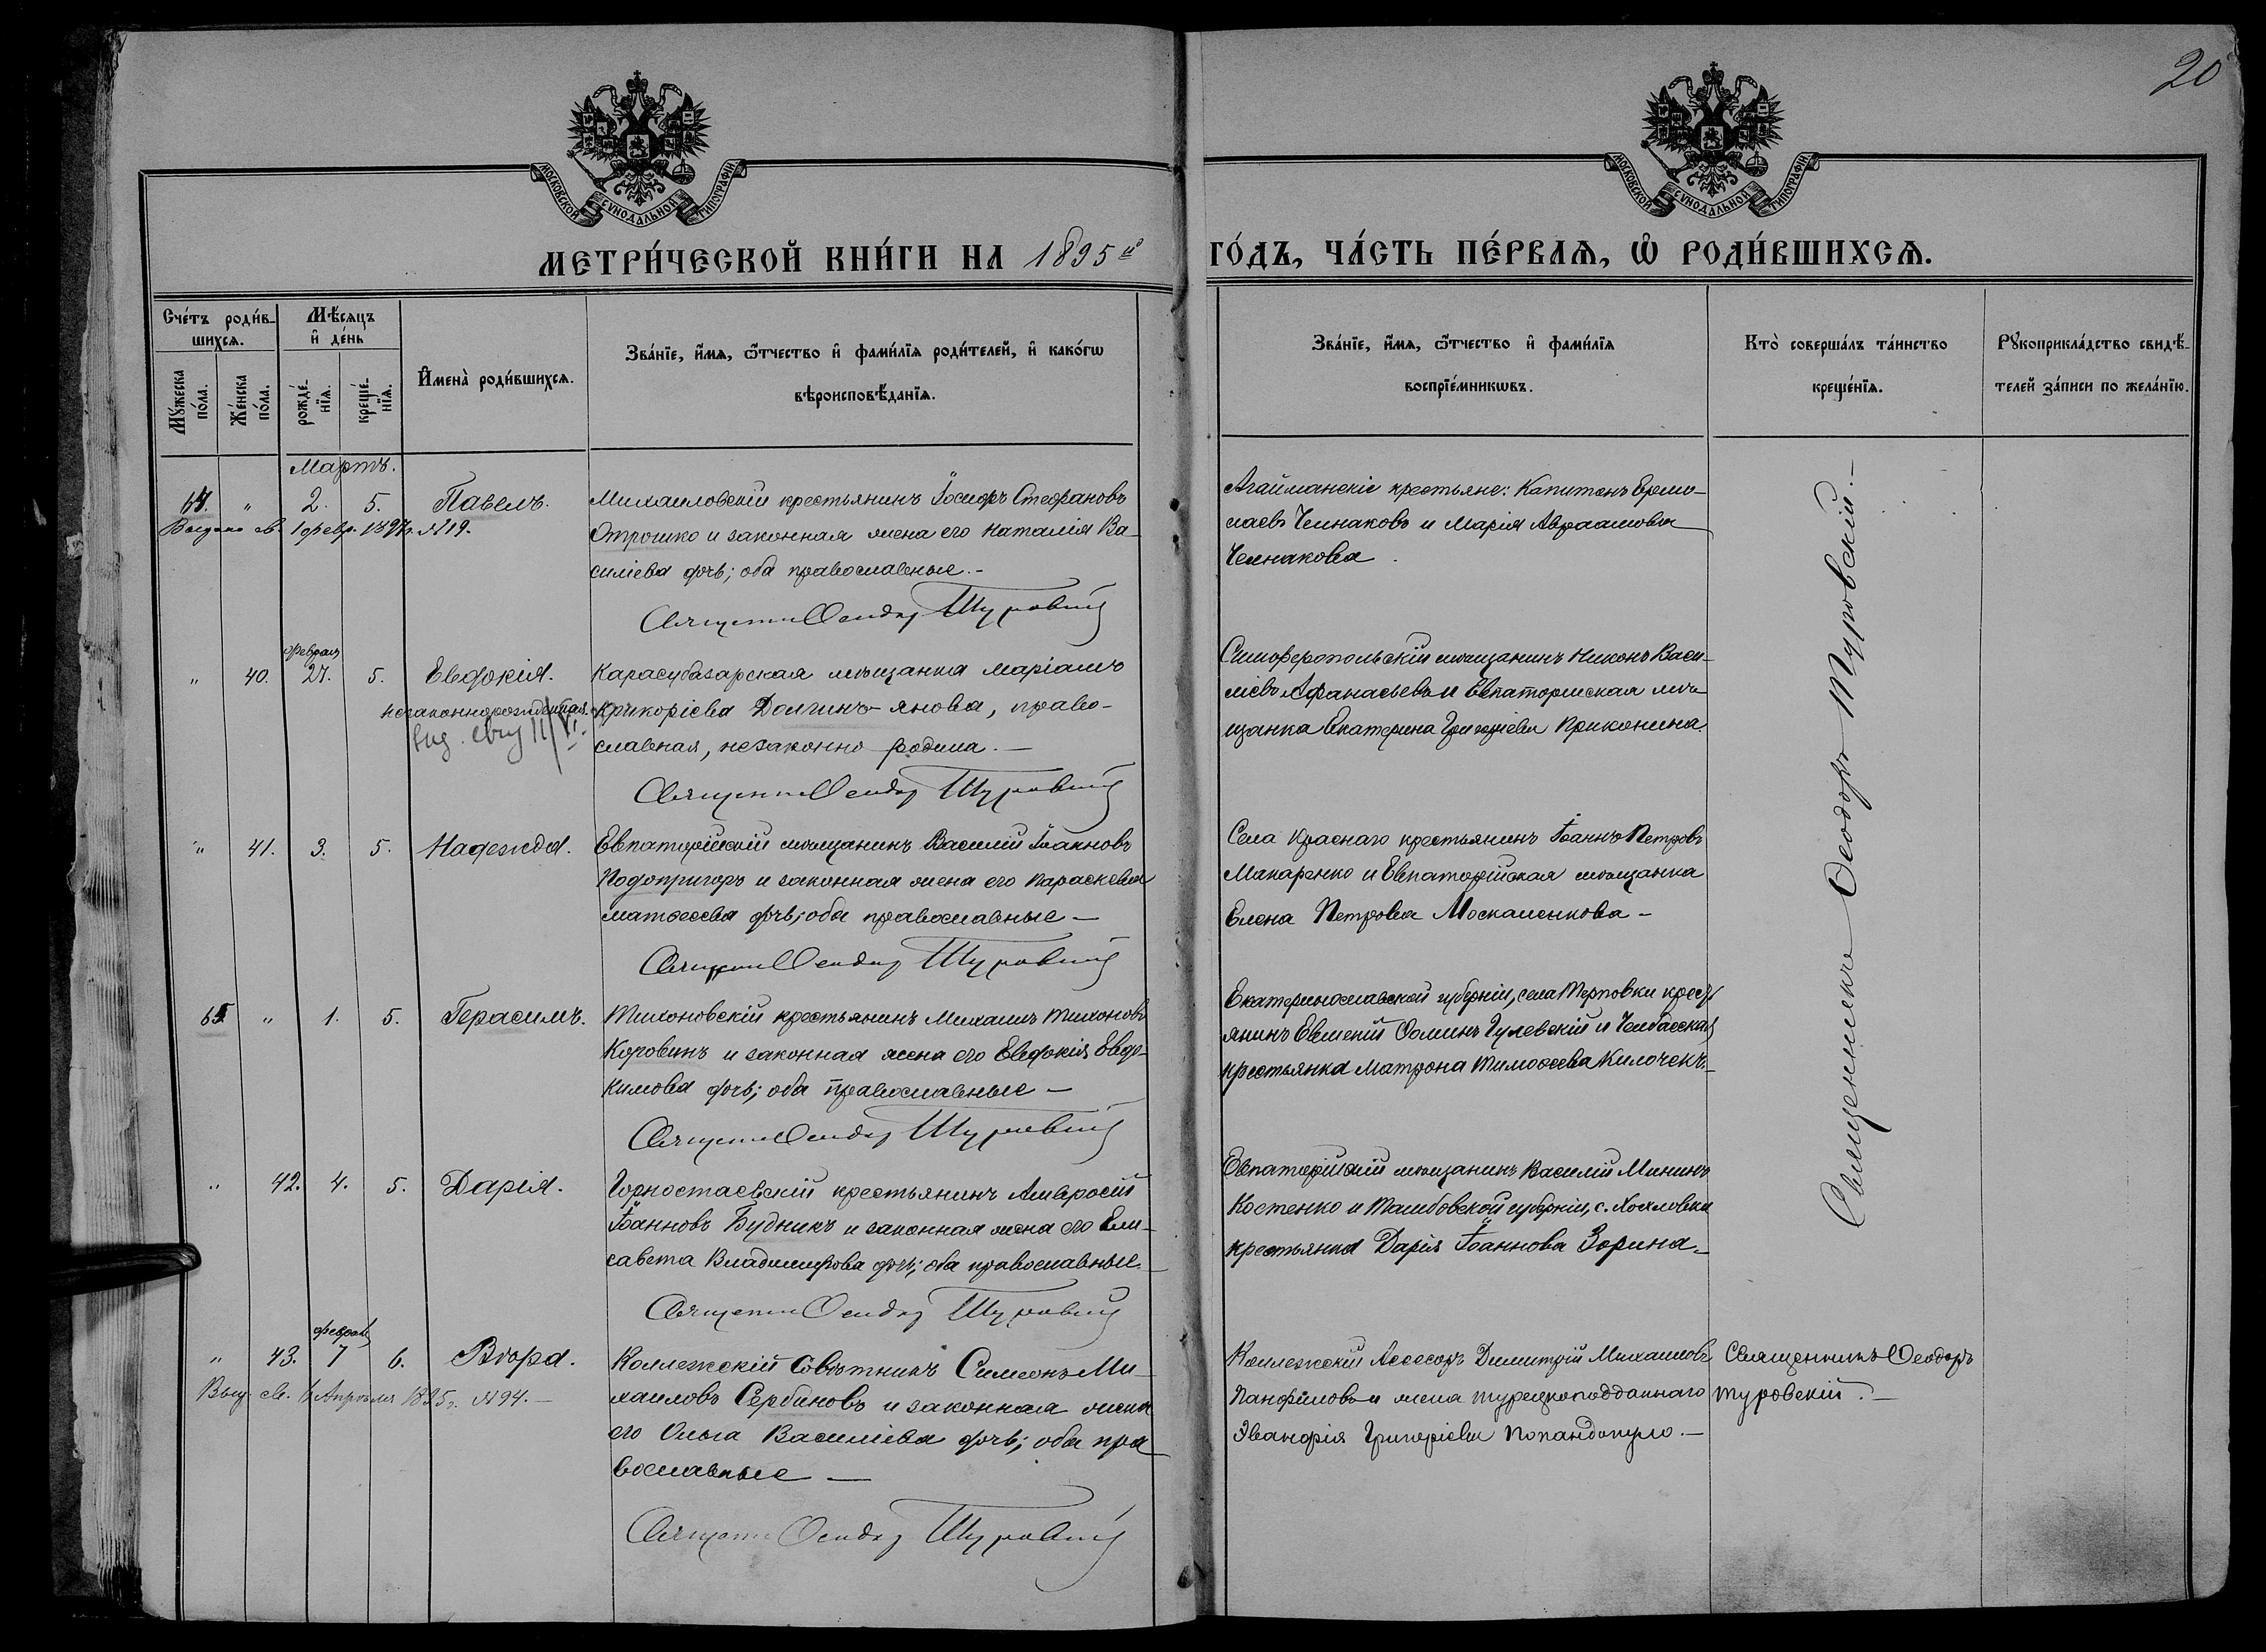 20
МОСКОВСКОЙ СѴНОДАЛЬНОЙ ТИПОГРАФІИ
МОСКОВСКОЙ СѴНОДАЛЬНОЙ ТИПОГРАФІИ
МЕТРИ́ЧЕСКОЙ КНИ́ГИ НА 1895й ГО́ДЪ, ЧА́СТЬ ПЕ́РВАѦ, Ѽ РОДИ́ВШИХСѦ.
Сче́тъ роди́в-
шихсѧ.
Мꙋ́жеска по́ла.
Же́нска по́ла.
Мѣ́сѧцъ
и҆ де́нь
рожде́-
нїѧ.
креще́-
нїѧ.
И҆мена̀ роди́вшихсѧ.
Зва́нїе, и҆́мѧ, ѻ҆́тчество и҆ фами́лїѧ роди́телей, и҆ како́гѡ
вѣроисповѣ́данїѧ.
Зва́нїе, и҆́мѧ, ѻ҆́тчество и҆ фами́лїѧ
воспрїе́мникѡвъ.
Кто̀ соверша́лъ та́инство
креще́нїѧ.
Рꙋкоприкла́дство свидѣ́-
телей за́писи по жела́нїю.
Мартъ.
64. " 2. 5. Павелъ.
Выдано св. 1 февр. 1897г. №19.
Михайловскій крестьянинъ Іосифъ Стефановъ
Отрошко и законная жена его Наталія Ва-
силіева дочь; оба православные.-
Священн. Ѳеодоръ Туровскій
Агайманскіе крестьяне: Капитонъ Ермо-
лаевъ Челнаковъ и Марія Авраамова
Челнакова.
Священникъ Ѳеодоръ Туровскій.-
" 40. февраля 27. 5. Евдокія.
незаконнорожденная.
Карасубазарская мѣщанка Маріамъ
Крикоріева Долгинъ-янова, право-
славная, незаконно-родила.-
Священн. Ѳеодоръ Туровскій
Симферопольскій мѣщанинъ Никонъ Васи-
ліевъ Афанасьевъ и Евпаторійская мѣ-
щанка Екатерина Григоріева Приконина.
" 41. 3. 5. Надежда.
Евпаторійскій мѣщанинъ Василій Іоанновъ
Подопригоръ и законная жена его Параскева
Матѳеева дочь; оба православные-
Священн. Ѳеодоръ Туровскій
Села Краснаго крестьянинъ Іоаннъ Петровъ
Макаренко и Евпаторійская мѣщанка
Елена Петрова Москаленкова-
65. " 1. 5. Герасимъ.
Тихоновскій крестьянинъ Михаилъ Тихоновъ
Коровинъ и законная жена его Евдокія Евдо-
кимова дочь; оба православные-
Священн. Ѳеодоръ Туровскій
Екатеринославской губерніи, села Терповки кресть-
янинъ Евгеній Ѳоминъ Гулевскій и
крестьянка Матрона Тимоѳеева Килочекъ.-
" 42. 4. 5. Дарія.
Горностаевскій крестьянинъ Амвросій
Іоанновъ Будникъ и законная жена его Ели-
савета Владимирова дочь; оба православные.
Священн. Ѳеодоръ Туровскій
Евпаторійскій мѣщанинъ Василій Мининъ
Костенко и Тамбовской губерніи, с.
крестьянка Дарія Іоаннова Зорина.-
" 43. февраля 7 6. Вѣра.
Выд. св. Апрѣля 1895г. №94.-
Коллежскій Совѣтникъ Симеонъ Ми-
хаиловъ Сербиновъ и законная жена
его Ольга Василіева дочь; оба пра-
вославные-
Священн. Ѳеодоръ Туровскій
Коллежскій Асессоръ Димитрій Михаиловъ
Панфиловъ и жена турецкоподданнаго
Эванфія Григоріева Попандопуло.-
Священникъ Ѳеодоръ
Туровскій.-